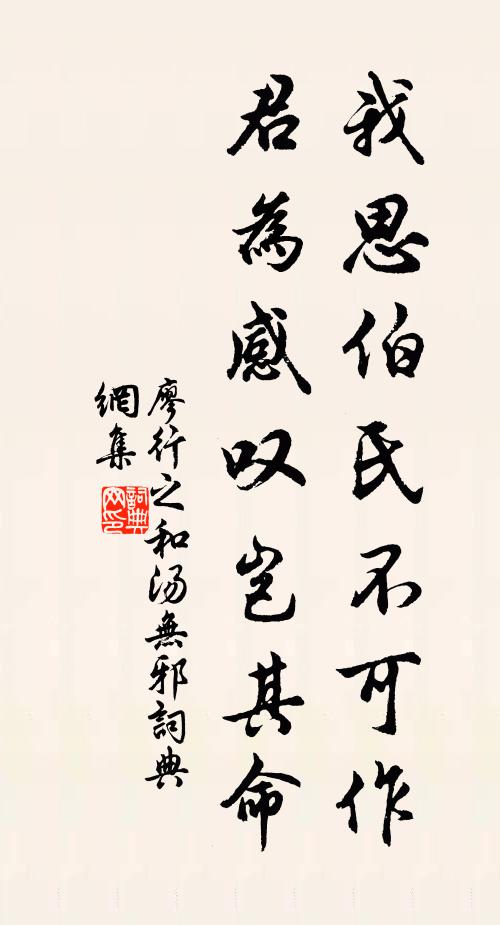 我思伯氏不可作
君為感叹岂其命
廖行之和汤無邪詞典
網集
詞典网印